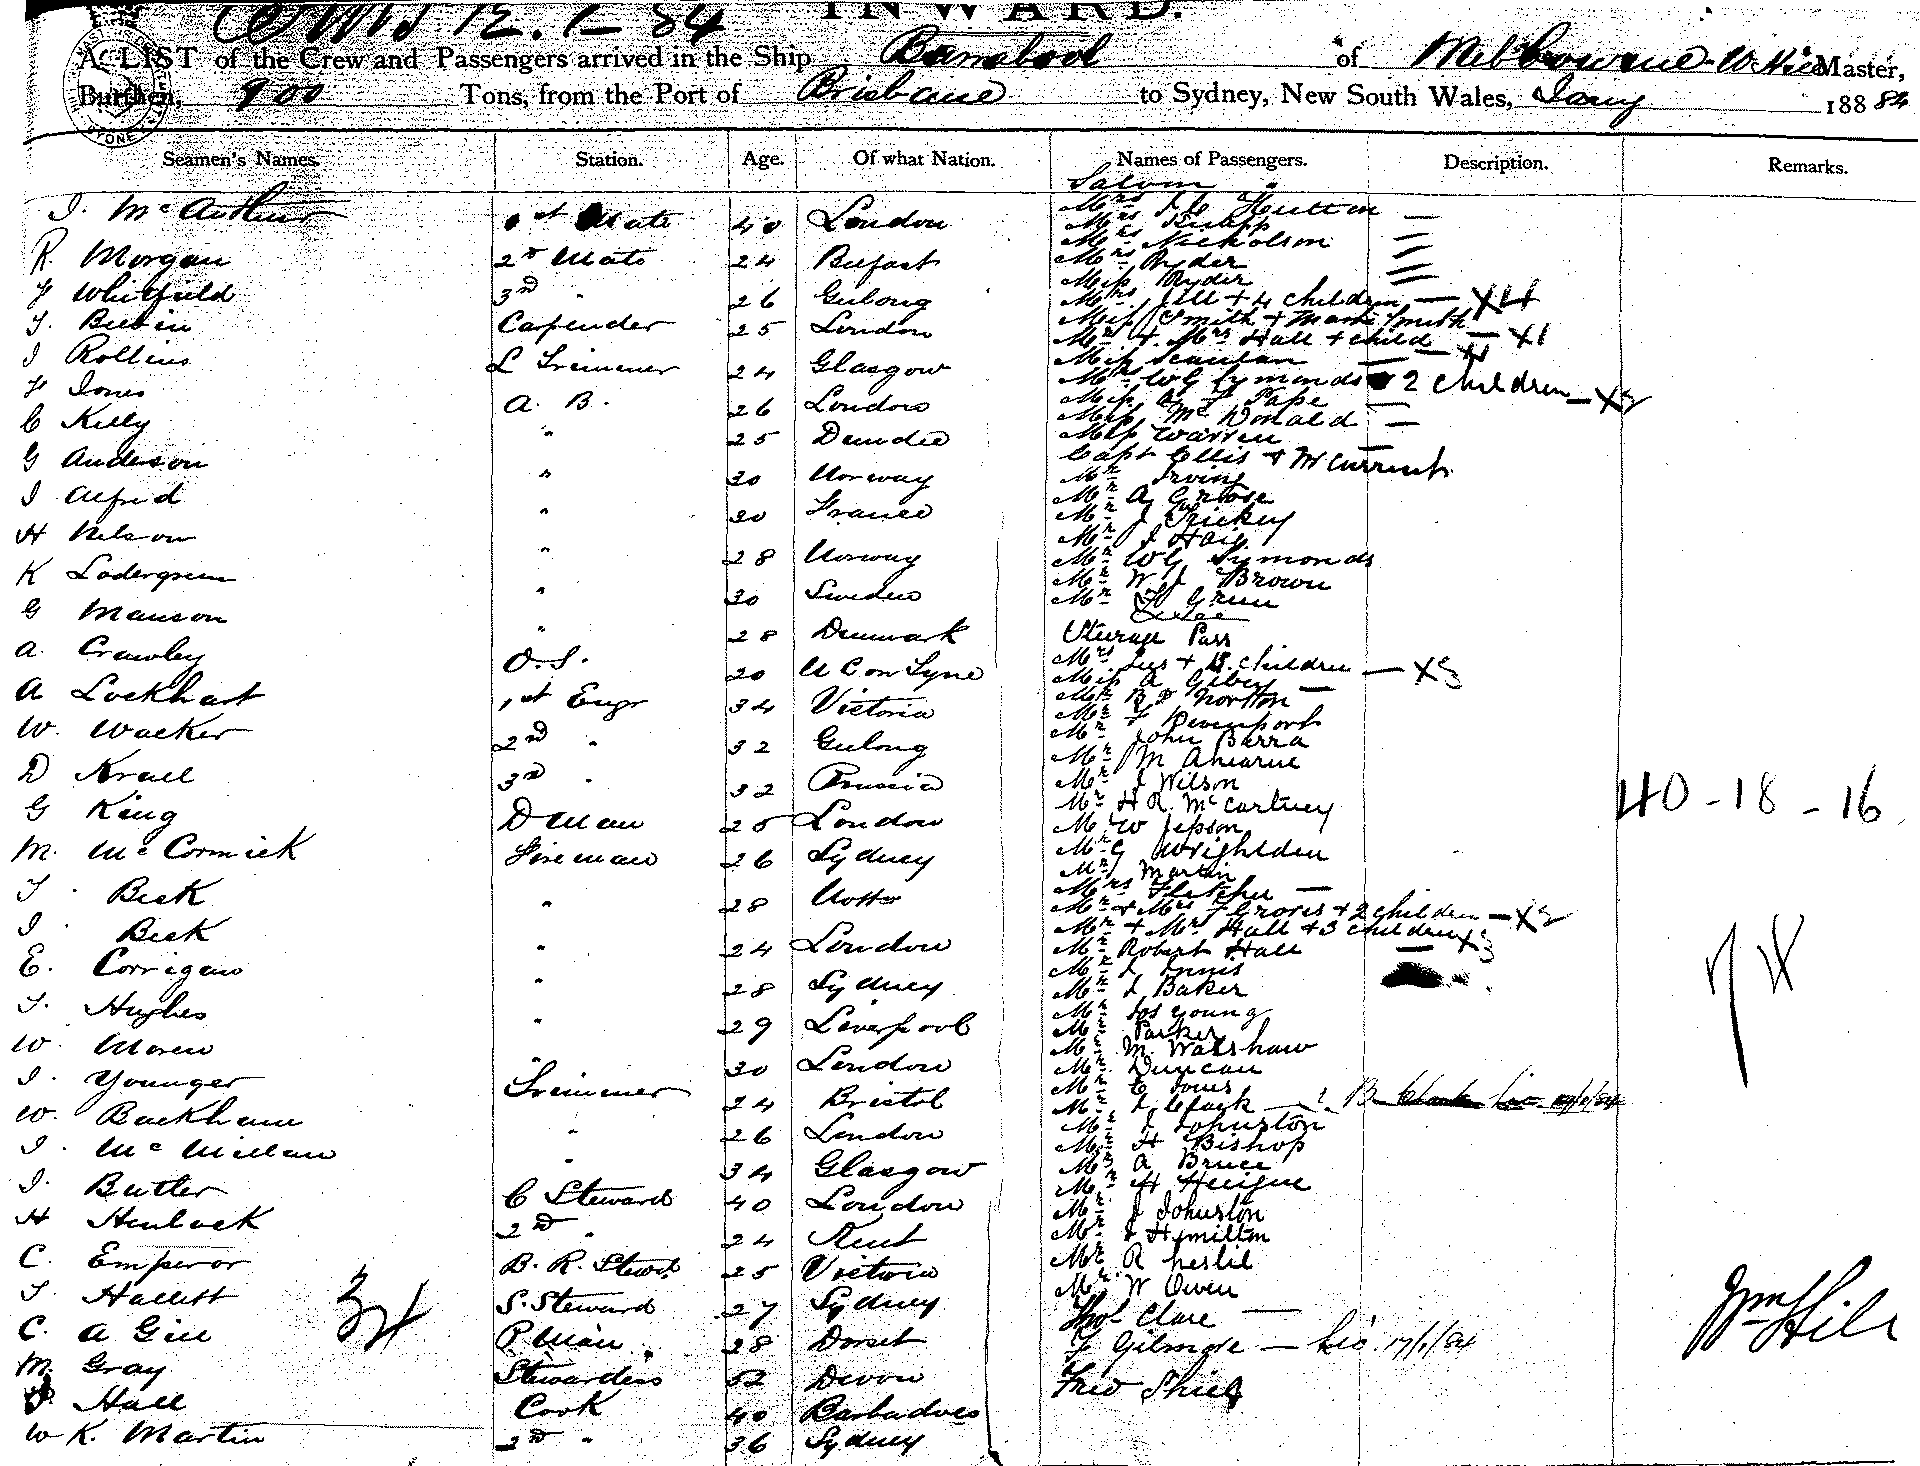 INWARD.
12.1-84
A LIST of the Crew and Passengers arrived in the Ship of Melbourne W Master,
Burthen, 900 Tons, from the Port of Brisbane to Sydney, New South Wales, Jany 188 84
Seamen's Names. Station. Age. Of what Nation. Names of Passengers. Description. Remarks.
Saloon "
J. McArthur 1st Mate 40 London
R. Morgan 2nd Mate 24 Belfast
Whitfield 3rd " 26 Geelong
Carpenter 25 London
J Rollins L Trimmer 24 Glasgow
Jones A. B. 26 London
C Kelly " 25 Dundee
G Anderson " 30 Norway
J Alfred " 30 France
H Nelson " 28 Norway
K Lodergreen " 30 Sweden
G Manson " 28 Denmark
A. Crawley O.S. 20
A Lockhart 1st Engr 34 Victoria
W. Walker 2nd " 32 Geelong
D Krall 3rd " 32 Prussia
G King D Man 25 London
M. McCormick Fireman 26 Sydney
T. Beck " 28 Notts
J. Beck " 24 London
E. Corrigan " 28 Sydney
T. Hughes " 29 Liverpool
W. " 30 London
J. Younger Trimmer 24 Bristol
W. Buckham " 26 London
J. McMillan " 34 Glasgow
J. Butler C Steward 40 London
H 2nd " 24 Kent
C. Emperor B. R. Stewd 25 Victoria
T. Hallett S. Steward 27 Sydney
C. A Gill P. Man 28 Dorset
M. Gray Stewardess 52 Devon
Hall Cook 40 Barbadoes
W K. Martin 2nd " 36 Sydney
34
Mrs Hutton —
Mrs —
Mrs Nicholson —
Mrs Ryder —
Miss Ryder —
Mrs Hill + 4 children — X4
Miss Smith + Smith — X1
Mr + Mrs Hall + child — X1
Miss Scanlan —
Mrs WG Symonds 2 children — X2
Miss Pape —
Miss McDonald —
Miss Warren —
Capt Ellis + Mr
Mr Irving
Mr A Groose
Mr J Hickey
Mr J Haig
Mr WG Symonds
Mr W J Brown
Mr Green
Steerage Pass
Mrs Lees + 3 children — X3
Miss A —
Mr B D Norton
Mr Devenport
Mr John Barra
Mr M Ahearne
Mr J Wilson
Mr H R. McCartney
Mr W Jepson
Mr G
Mr Martin
Mrs Fletcher —
Mr + Mrs Groves + 2 children — X2
Mr + Mrs Hall + 3 children X3
Mr Robert Hall —
Mr J Innis
Mr J Baker
Mr Jos Young
Mr Parker
Mr M. Walshaw
Mr Duncan
Mr C Jones
Mr J
Mr J Johnston
Mr H Bishop
Mr A Bruce
Mr H
Mr J Johnston
Mr J Hamilton
Mr R Leslie
Mr W Owen
Thos Clare —
Gilmore — 17/1/84
Fred Shiels
40 - 18 - 16
74
Wm Hill